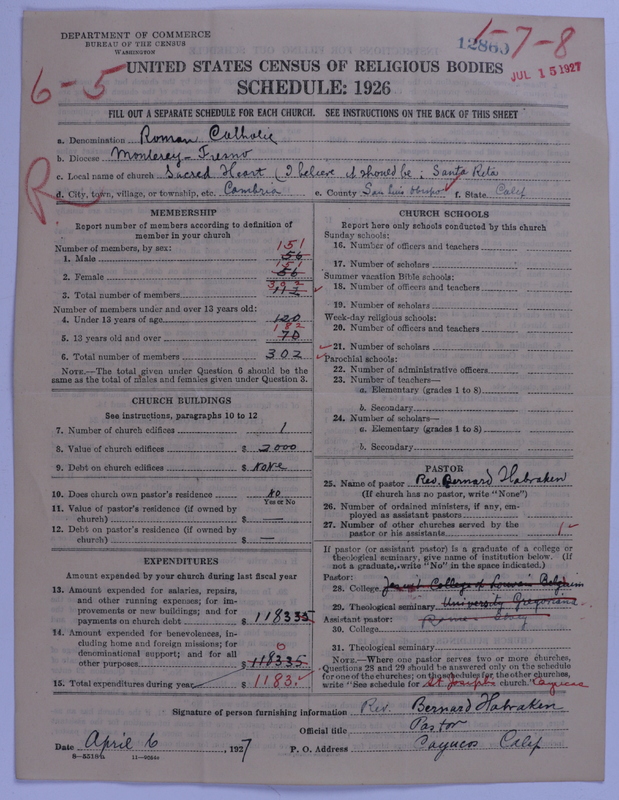 DEPARTMENT OF COMMERCE
BUREAU OF THE CENSUS
WASHINGTON
12860
5-7-8
JUL 15 1927
6-5
R
UNITED STATES CENSUS OF RELIGIOUS BODIES
SCHEDULE: 1926
FILL OUT A SEPARATE SCHEDULE FOR EACH CHURCH. SEE INSTRUCTIONS ON THE BACK OF THIS SHEET
a. Denomination Roman Catholic
b. Diocese Monterey-Fresno
c. Local name of church Sacred Heart (I believe it should be: Santa Rita
d. City, town, village, or township, etc. Cambria e. County San Luis Obispo f. State Calif
MEMBERSHIP
Report number of members according to definition of
member in your church
Number of members, by sex:
151
1. Male 56
151
2. Female 56
302
3. Total number of members 112
Number of members under and over 13 years old:
4. Under 13 years of age 120
182
5. 13 years old and over 70
6. Total number of members 302
NOTE.—The total given under Question 6 should be the
same as the total of males and females given under Question 3.
CHURCH BUILDINGS
See instructions, paragraphs 10 to 12
7. Number of church edifices 1
8. Value of church edifices $ 2000
9. Debt on church edifices $ None
10. Does church own pastor's residence No
Yes or No
11. Value of pastor's residence (if owned by
church) $ —
12. Debt on pastor's residence (if owned by
church) $ —
EXPENDITURES
Amount expended by your church during last fiscal year
13. Amount expended for salaries, repairs,
and other running expenses; for im-
provements or new buildings; and for
payments on church debt $ 118335
14. Amount expended for benevolences, in-
cluding home and foreign missions; for
denominational support; and for all
0
other purposes $ 118335
15. Total expenditures during year $ 1183.
CHURCH SCHOOLS
Report here only schools conducted by this church
Sunday schools:
16. Number of officers and teachers
17. Number of scholars
Summer vacation Bible schools:
18. Number of officers and teachers
19. Number of scholars
Week-day religious schools:
20. Number of officers and teachers
21. Number of scholars
Parochial schools:
22. Number of administrative officers
23. Number of teachers—
a. Elementary (grades 1 to 8)
b. Secondary
24. Number of scholars—
a. Elementary (grades 1 to 8)
b. Secondary
PASTOR
25. Name of pastor Rev. Bernard Habraken
(If church has no pastor, write "None")
26. Number of ordained ministers, if any, em-
ployed as assistant pastors
27. Number of other churches served by the
pastor or his assistants 1
If pastor (or assistant pastor) is a graduate of a college or
theological seminary, give name of institution below. (If
not a graduate, write "No" in the space indicated.)
Pastor:
28. College Jesuit College of Louvain Belgium
29. Theological seminary University Gregoriana
Assistant pastor:
30. College
31. Theological seminary
NOTE.—Where one pastor serves two or more churches,
Questions 28 and 29 should be answered only on the schedule
for one of the churches; on the schedules for the other churches,
write "See schedule for St Josephs church." Cayucos
Signature of person furnishing information Rev. Bernard Habraken
Official title Pastor
Date April 6, 1927 P. O. Address Cayucos Calif
8—5518a 11—9264a